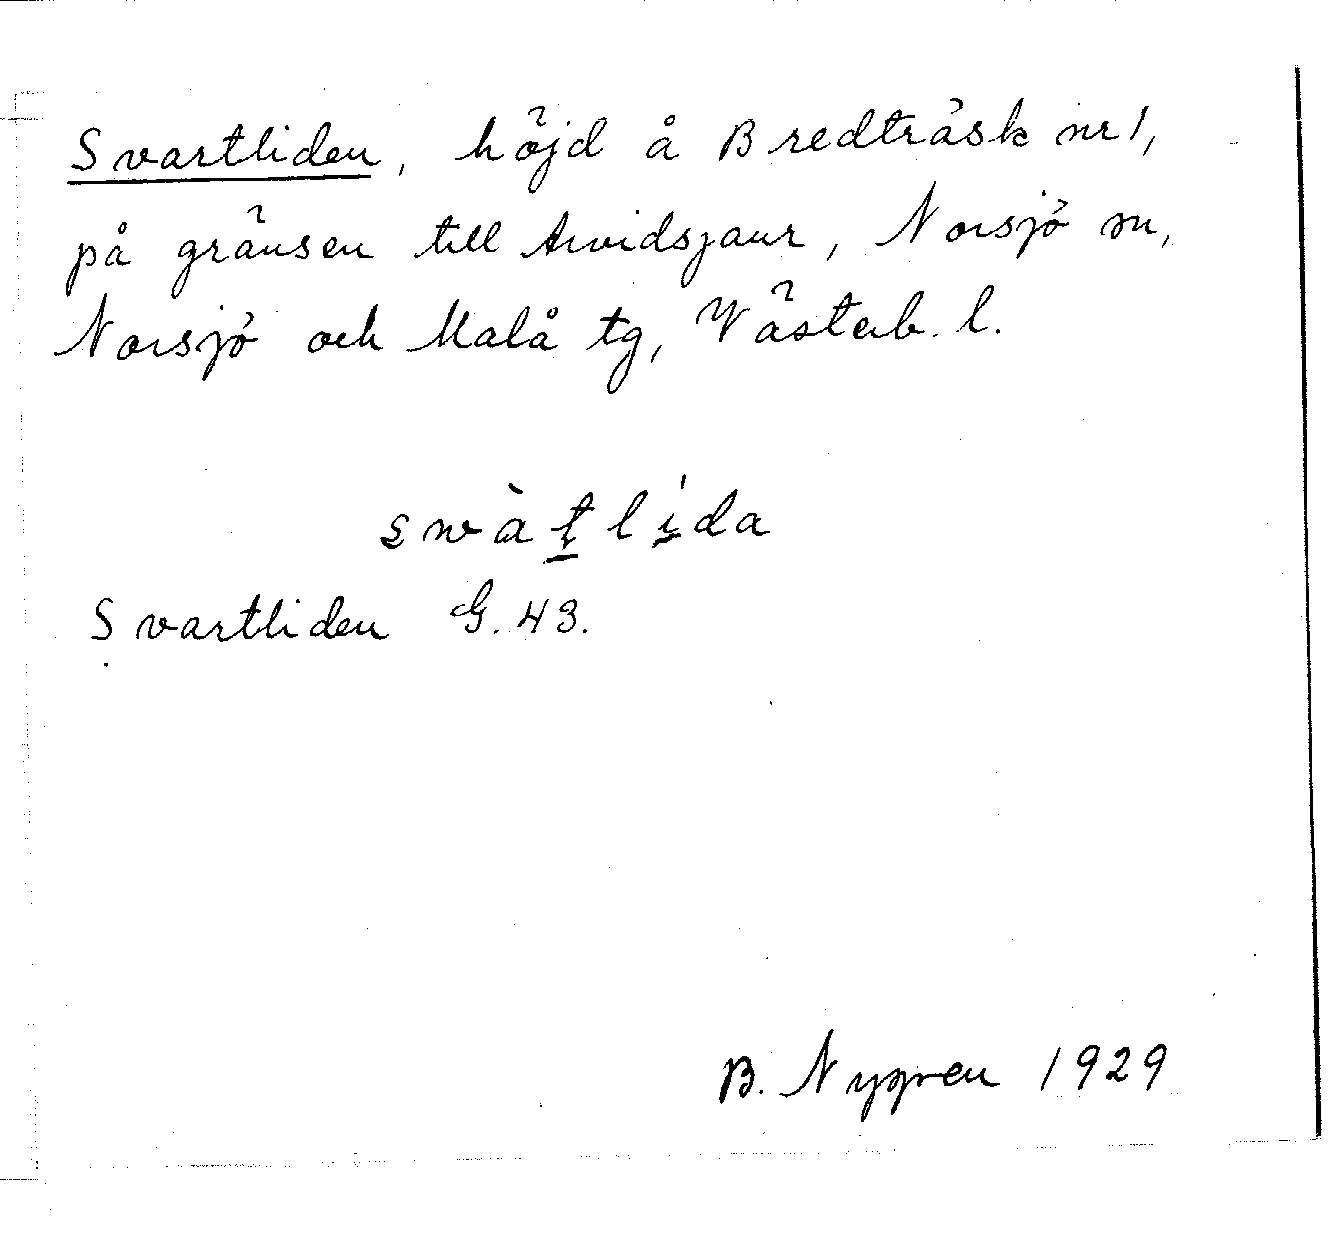 Svartliden, höjd å Bredträsk nr 1,
på gränsen till Arvidsjaur, Norsjö sn,
Norsjö och Malå tg, Västerb. l.
swàt̲lí̱da
Svartliden G. 43.
B. Nygren 1929